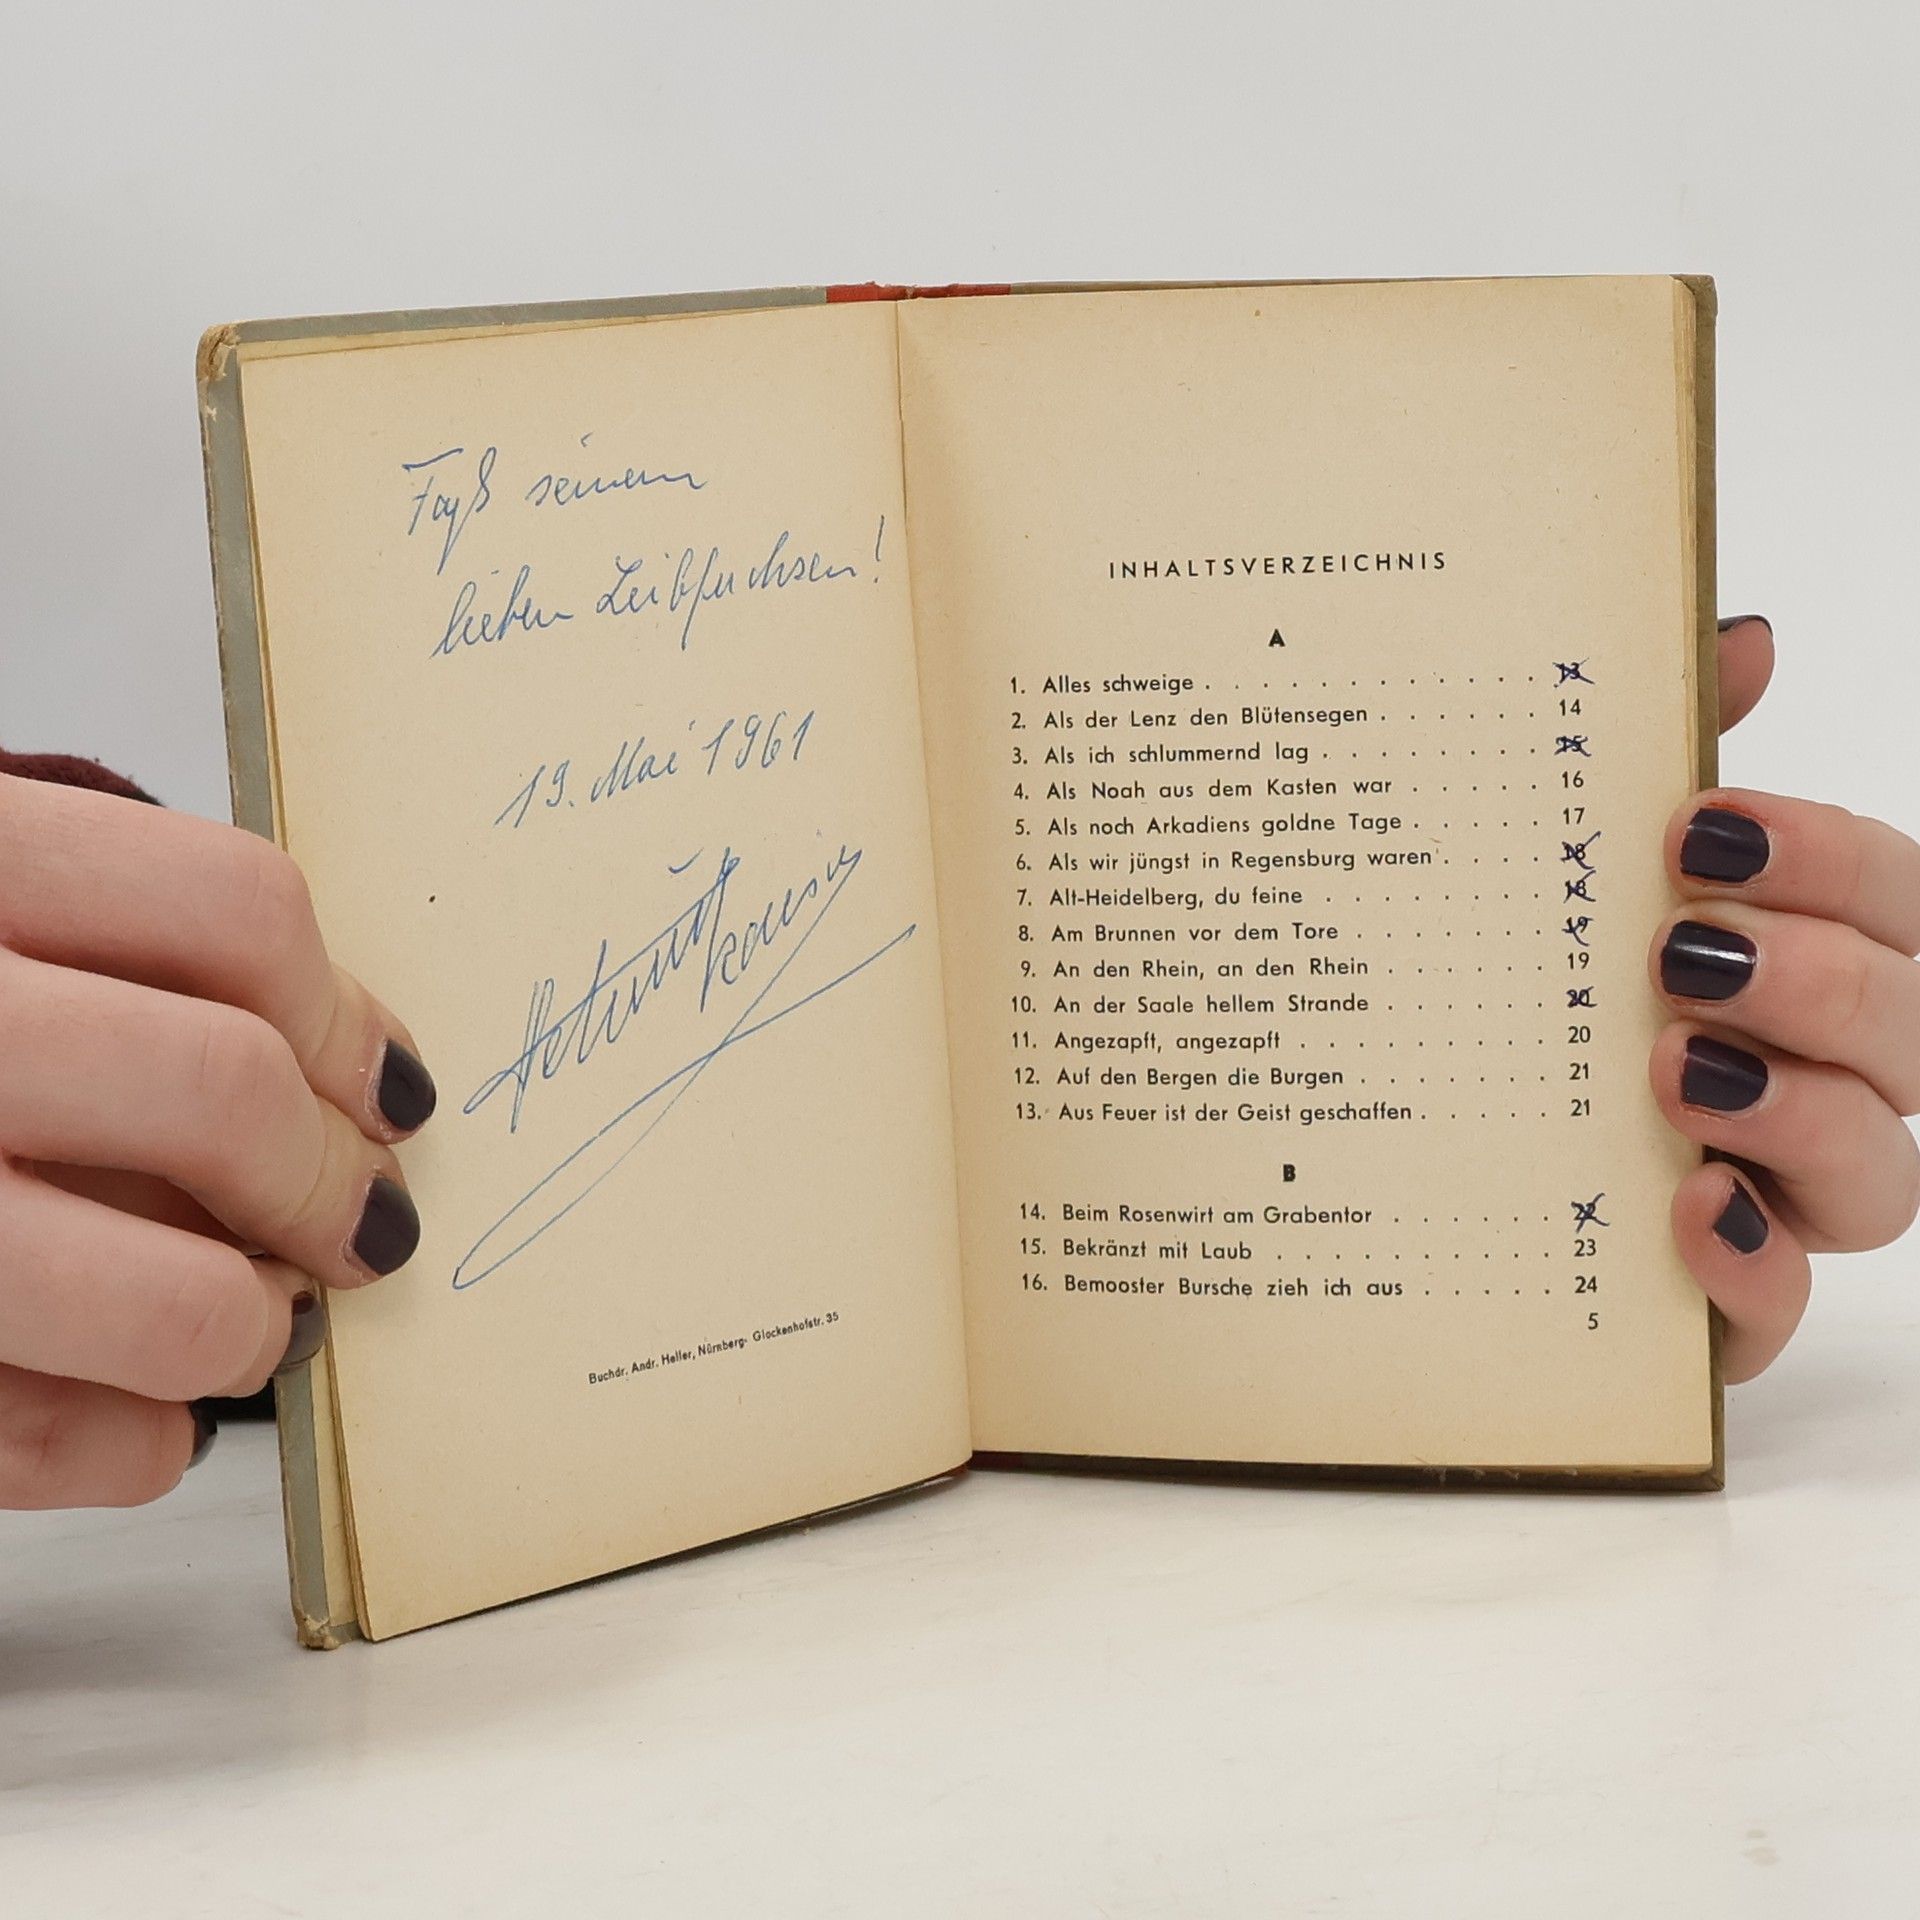 seinem
lieben Leibfuchsen!
19. Mai 1961
Buchdr. Andr. Heller, Nürnberg, Glockenhofstr. 35
INHALTSVERZEICHNIS
A
1. Alles schweige . . . . . . . . . . . . 13
2. Als der Lenz den Blütensegen . . . . . . 14
3. Als ich schlummernd lag . . . . . . . . 15
4. Als Noah aus dem Kasten war . . . . . 16
5. Als noch Arkadiens goldne Tage . . . . . 17
6. Als wir jüngst in Regensburg waren . . . . 18
7. Alt-Heidelberg, du feine . . . . . . . . 18
8. Am Brunnen vor dem Tore . . . . . . . 19
9. An den Rhein, an den Rhein . . . . . . 19
10. An der Saale hellem Strande . . . . . . 20
11. Angezapft, angezapft . . . . . . . . . 20
12. Auf den Bergen die Burgen . . . . . . . 21
13. Aus Feuer ist der Geist geschaffen . . . . . 21
B
14. Beim Rosenwirt am Grabentor . . . . . . 22
15. Bekränzt mit Laub . . . . . . . . . . 23
16. Bemooster Bursche zieh ich aus . . . . . 24
5